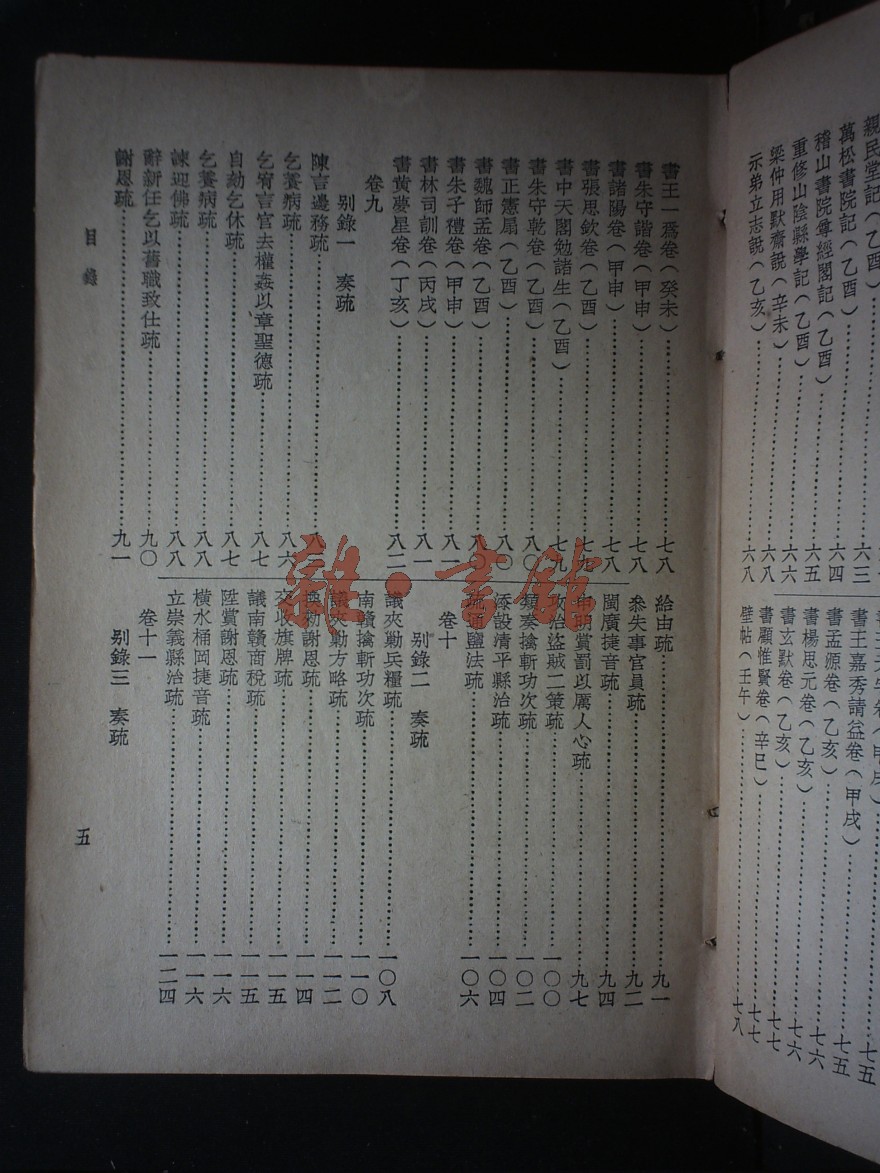 親民堂記(乙酉)……六三
萬松書院記(乙酉)……六四
稽山書院尊經閣記(乙酉)……六五
重修山陰縣學記(乙酉)……六六
梁仲用默齋說(辛未)……六八
示弟立志說(乙亥)……六八
書王嘉秀請益卷(甲戌)……七五
書孟源卷(乙亥)……七五
書楊思元卷(乙亥)……七六
書玄默卷(乙亥)……七六
書顧惟賢卷(辛巳)……七七
壁帖(壬午)……七八
書王一為卷(癸未)……七八
書朱守諧卷(甲申)……七八
書諸陽卷(甲申)……七八
書張思欽卷(乙酉)……七九
書中天閣勉諸生(乙酉)……七九
書朱守乾卷(乙酉)……八〇
書正憲扇(乙酉)……八〇
書魏師孟卷(乙酉)……八〇
書朱子禮卷(甲申)……八一
書林司訓卷(丙戌)……八一
書黃夢星卷(丁亥)……八二
卷九
别錄一 奏疏
陳言邊務疏……八三
乞養病疏……八六
乞宥言官去權姦以章聖德疏……八七
自劾乞休疏……八七
乞養病疏……八八
諫迎佛疏……八八
辭新任乞以舊職致仕疏……九〇
謝恩疏……九一
給由疏……九一
叅失事官員疏……九二
閩廣捷音疏……九四
申明賞罰以厲人心疏……九七
攻治盜賊二策疏……一〇〇
類奏擒斬功次疏……一〇二
添設清平縣治疏……一〇四
疏通鹽法疏……一〇六
卷十
别錄二 奏疏
議夾勦兵糧疏……一〇八
南贛擒斬功次疏……一一〇
議夾勦方略疏……一一二
換勅謝恩疏……一一四
交收旗牌疏……一一五
議南贛商稅疏……一一五
陞賞謝恩疏……一一六
橫水桶岡捷音疏……一一六
立崇義縣治疏……一二四
卷十一
别錄三 奏疏
目錄
五
雜·書館